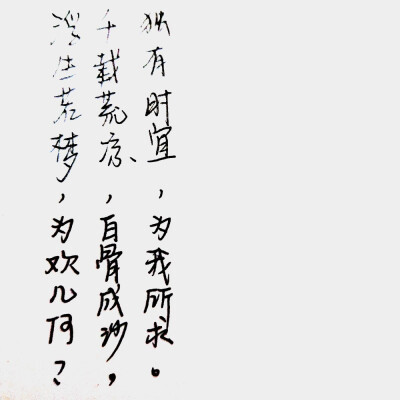 浮生若梦，为欢几何？
千载荒凉，白骨成沙，
独有时宜，为我所求。